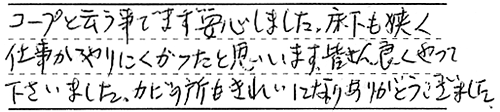 コープと云う事でまず安心しました。床下も狭く
仕事がやりにくかったと思います。皆さん良くやって
下さいました。カビの所もきれいになりありがとうございました。